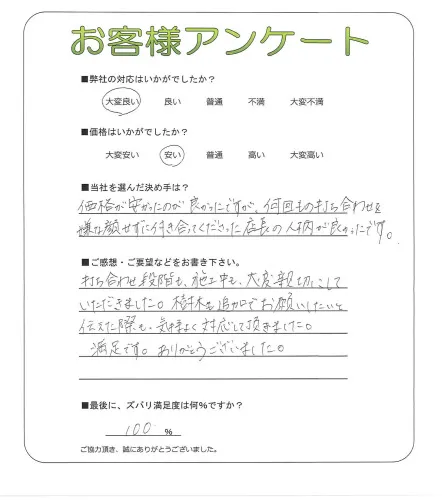 お客様アンケート
■弊社の対応はいかがでしたか？
大変良い 良い 普通 不満 大変不満
■価格はいかがでしたか？
大変安い 安い 普通 高い 大変高い
■当社を選んだ決め手は？
価格が安かったのが良かったですが、何回もの打ち合わせを
嫌な顔せずに付き合ってくださった店長の人柄が良かったです。
■ご感想・ご要望などをお書き下さい。
打ち合わせ段階も、施工中も、大変親切にして
いただきました。樹木も追加でお願いしたいと
伝えた際も、気持よく対応して頂きました。
満足です。ありがとうございました。
■最後に、ズバリ満足度は何％ですか？
100 %
ご協力頂き、誠にありがとうございました。